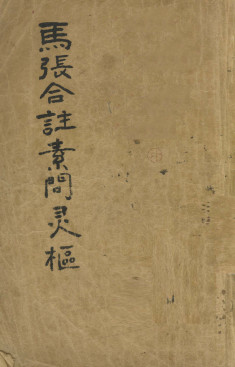 馬張合註素問灵樞